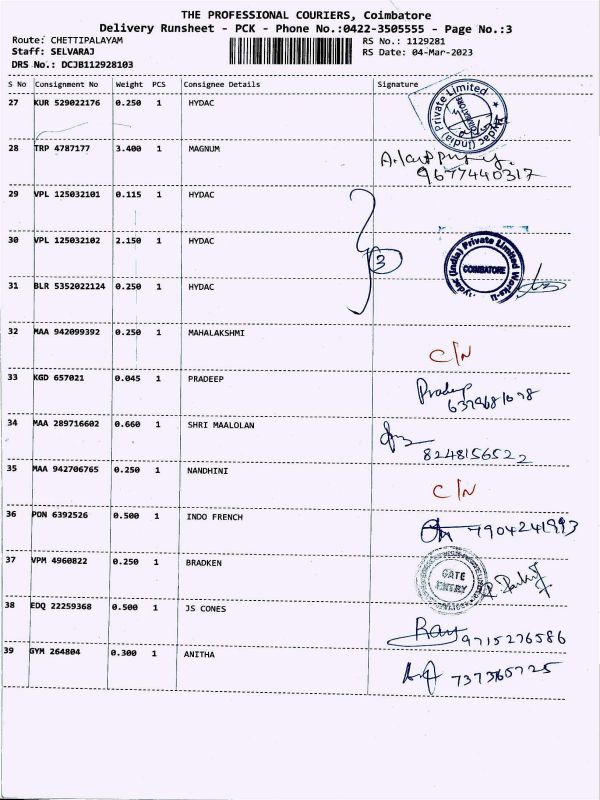 THE PROFESSIONAL COURIERS, Coimbatore
Delivery Runsheet - PCK - Phone No.:0422-3505555 - Page No.:3
Route: CHETTIPALAYAM RS No.: 1129281
Staff: SELVARAJ RS Date: 04-Mar-2023
DRS No.: DCJB112928103
S No Consignment No Weight PCS Consignee Details Signature
27 KUR 529022176 0.250 1 HYDAC
Hydac (India) Private Limited COIMBATORE
28 TRP 4787177 3.400 1 MAGNUM
9677440317
29 VPL 125032101 0.115 1 HYDAC
30 VPL 125032102 2.150 1 HYDAC 3
Hydac (India) Private Limited Works-II COIMBATORE
31 BLR 5352022124 0.250 1 HYDAC
32 MAA 942099392 0.250 1 MAHALAKSHMI C/N
33 KGD 657021 0.045 1 PRADEEP Pradeep
34 MAA 289716602 0.660 1 SHRI MAALOLAN
8248156522
35 MAA 942706765 0.250 1 NANDHINI C/N
36 PON 6392526 0.500 1 INDO FRENCH 7904241993
37 VPM 4960822 0.250 1 BRADKEN GATE ENTRY
38 EDQ 22259368 0.500 1 JS CONES
9715276586
39 GYM 264804 0.300 1 ANITHA